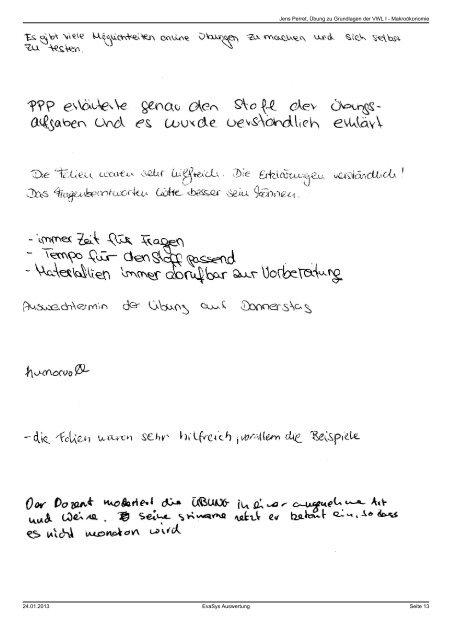 Jens Perret, Übung zu Grundlagen der VWL I - Makroökonomie
Es gibt viele Möglichkeiten online Übungen zu machen und sich selbst
zu testen.
PPP erläuterte genau den Stoff der Übungs-
aufgaben und es wurde verständlich erklärt
Die Folien waren sehr hilfreich. Die Erklärungen verständlich!
Das Fragenbeantworten hätte besser sein können.
- immer Zeit für Fragen
- Tempo für den Stoff passend
- Materialien immer abrufbar zur Vorbereitung
Ausweichtermin der Übung auf Donnerstag
humorvoll
- die Folien waren sehr hilfreich, vorallem die Beispiele
Der Dozent moderiert die ÜBUNG in einer angenehme Art
und Weise. Seine stimme setzt er betont ein, so dass
es nicht monoton wird
24.01.2013
EvaSys Auswertung
Seite 13